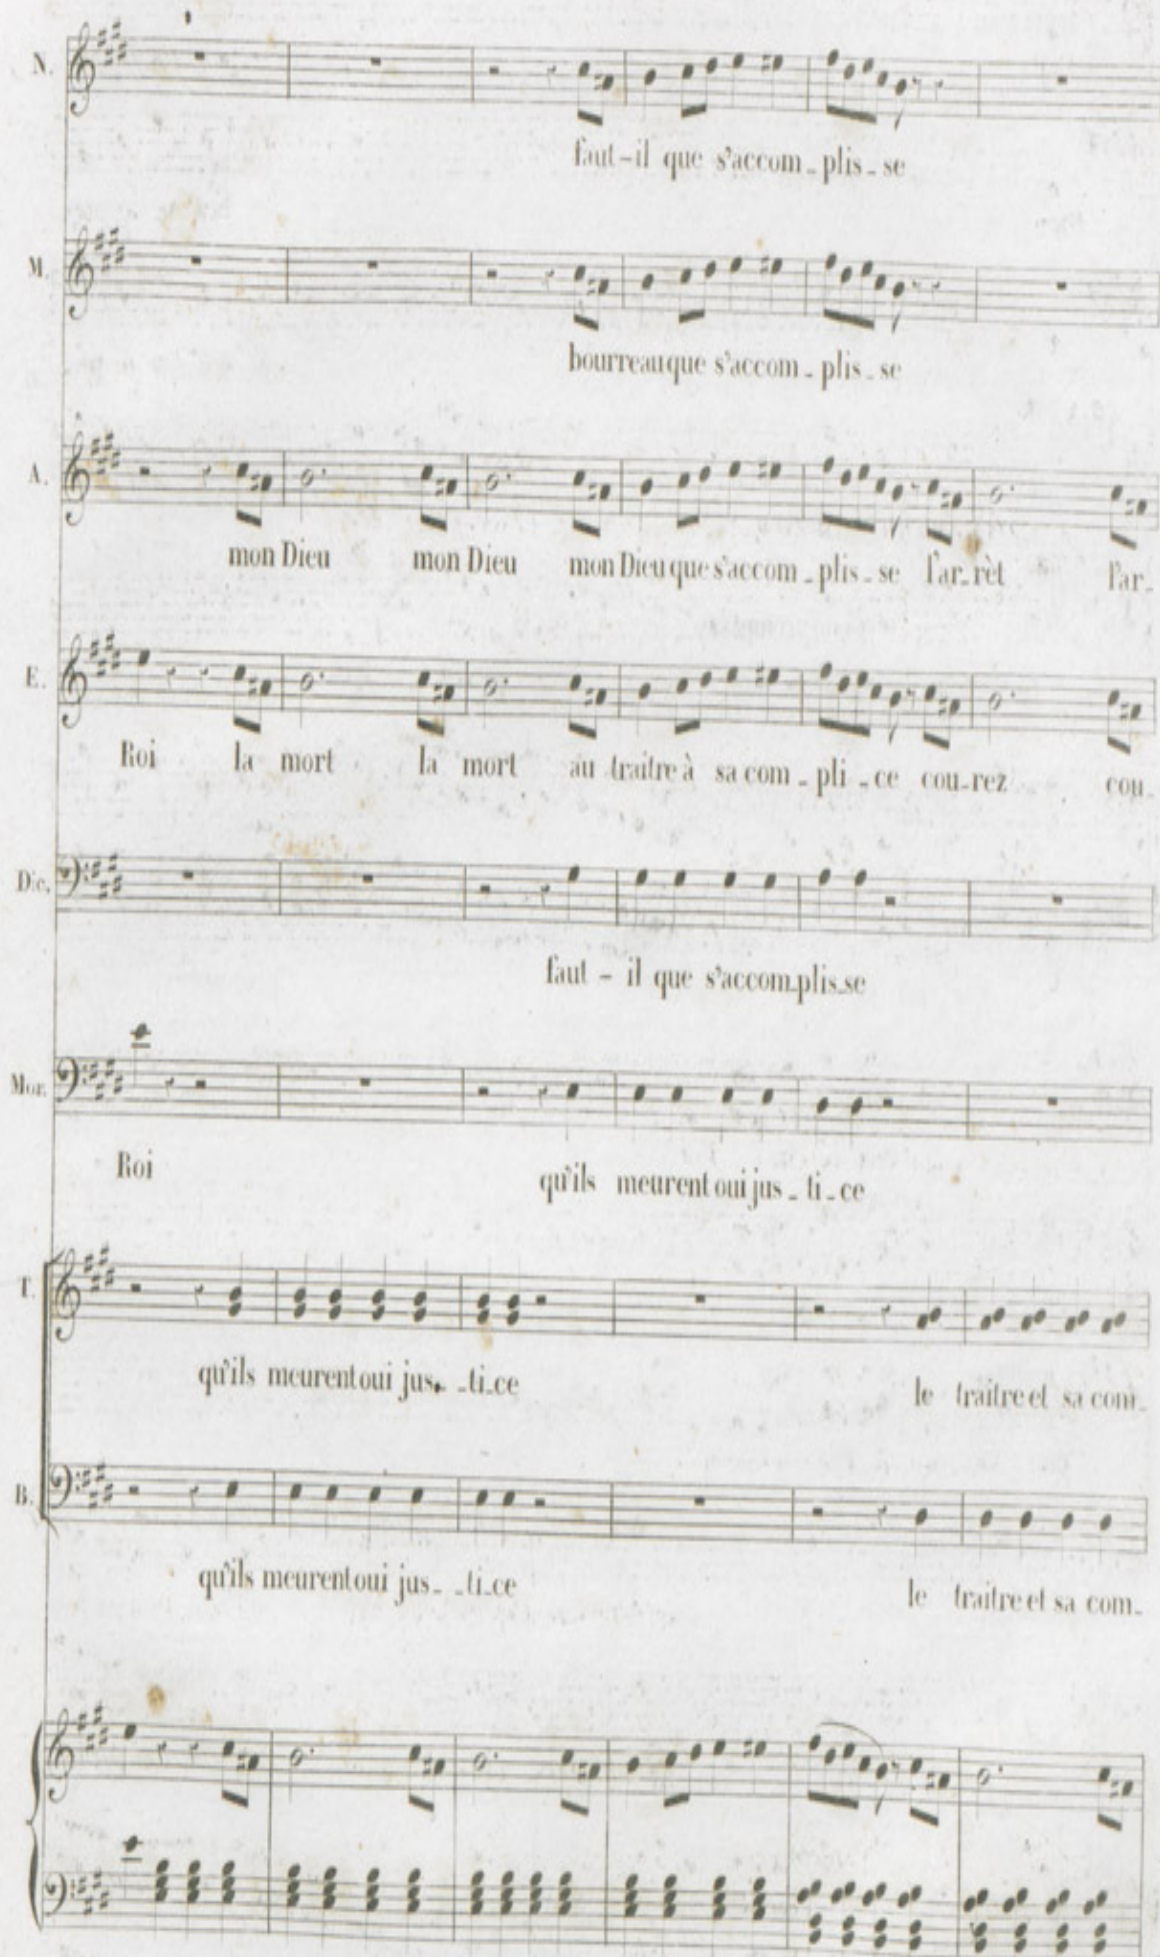 N.
faut-il que s'accom_plis_se
M.
bourreau que s'accom_plis_se
A.
mon Dieu mon Dieu mon Dieu que s'accom_plis_se l'ar_rèt l'ar_
E.
Roi la mort la mort au traitre à sa com_pli_ce cou_rez cou_
Dic.
faut-il que s'accom_plis_se
Mor.
Roi qu'ils meurent oui jus_ti_ce
T.
qu'ils meurent oui jus_ _ti_ce le traitre et sa com_
B.
qu'ils meurent oui jus_ _ti_ce le traitre et sa com_